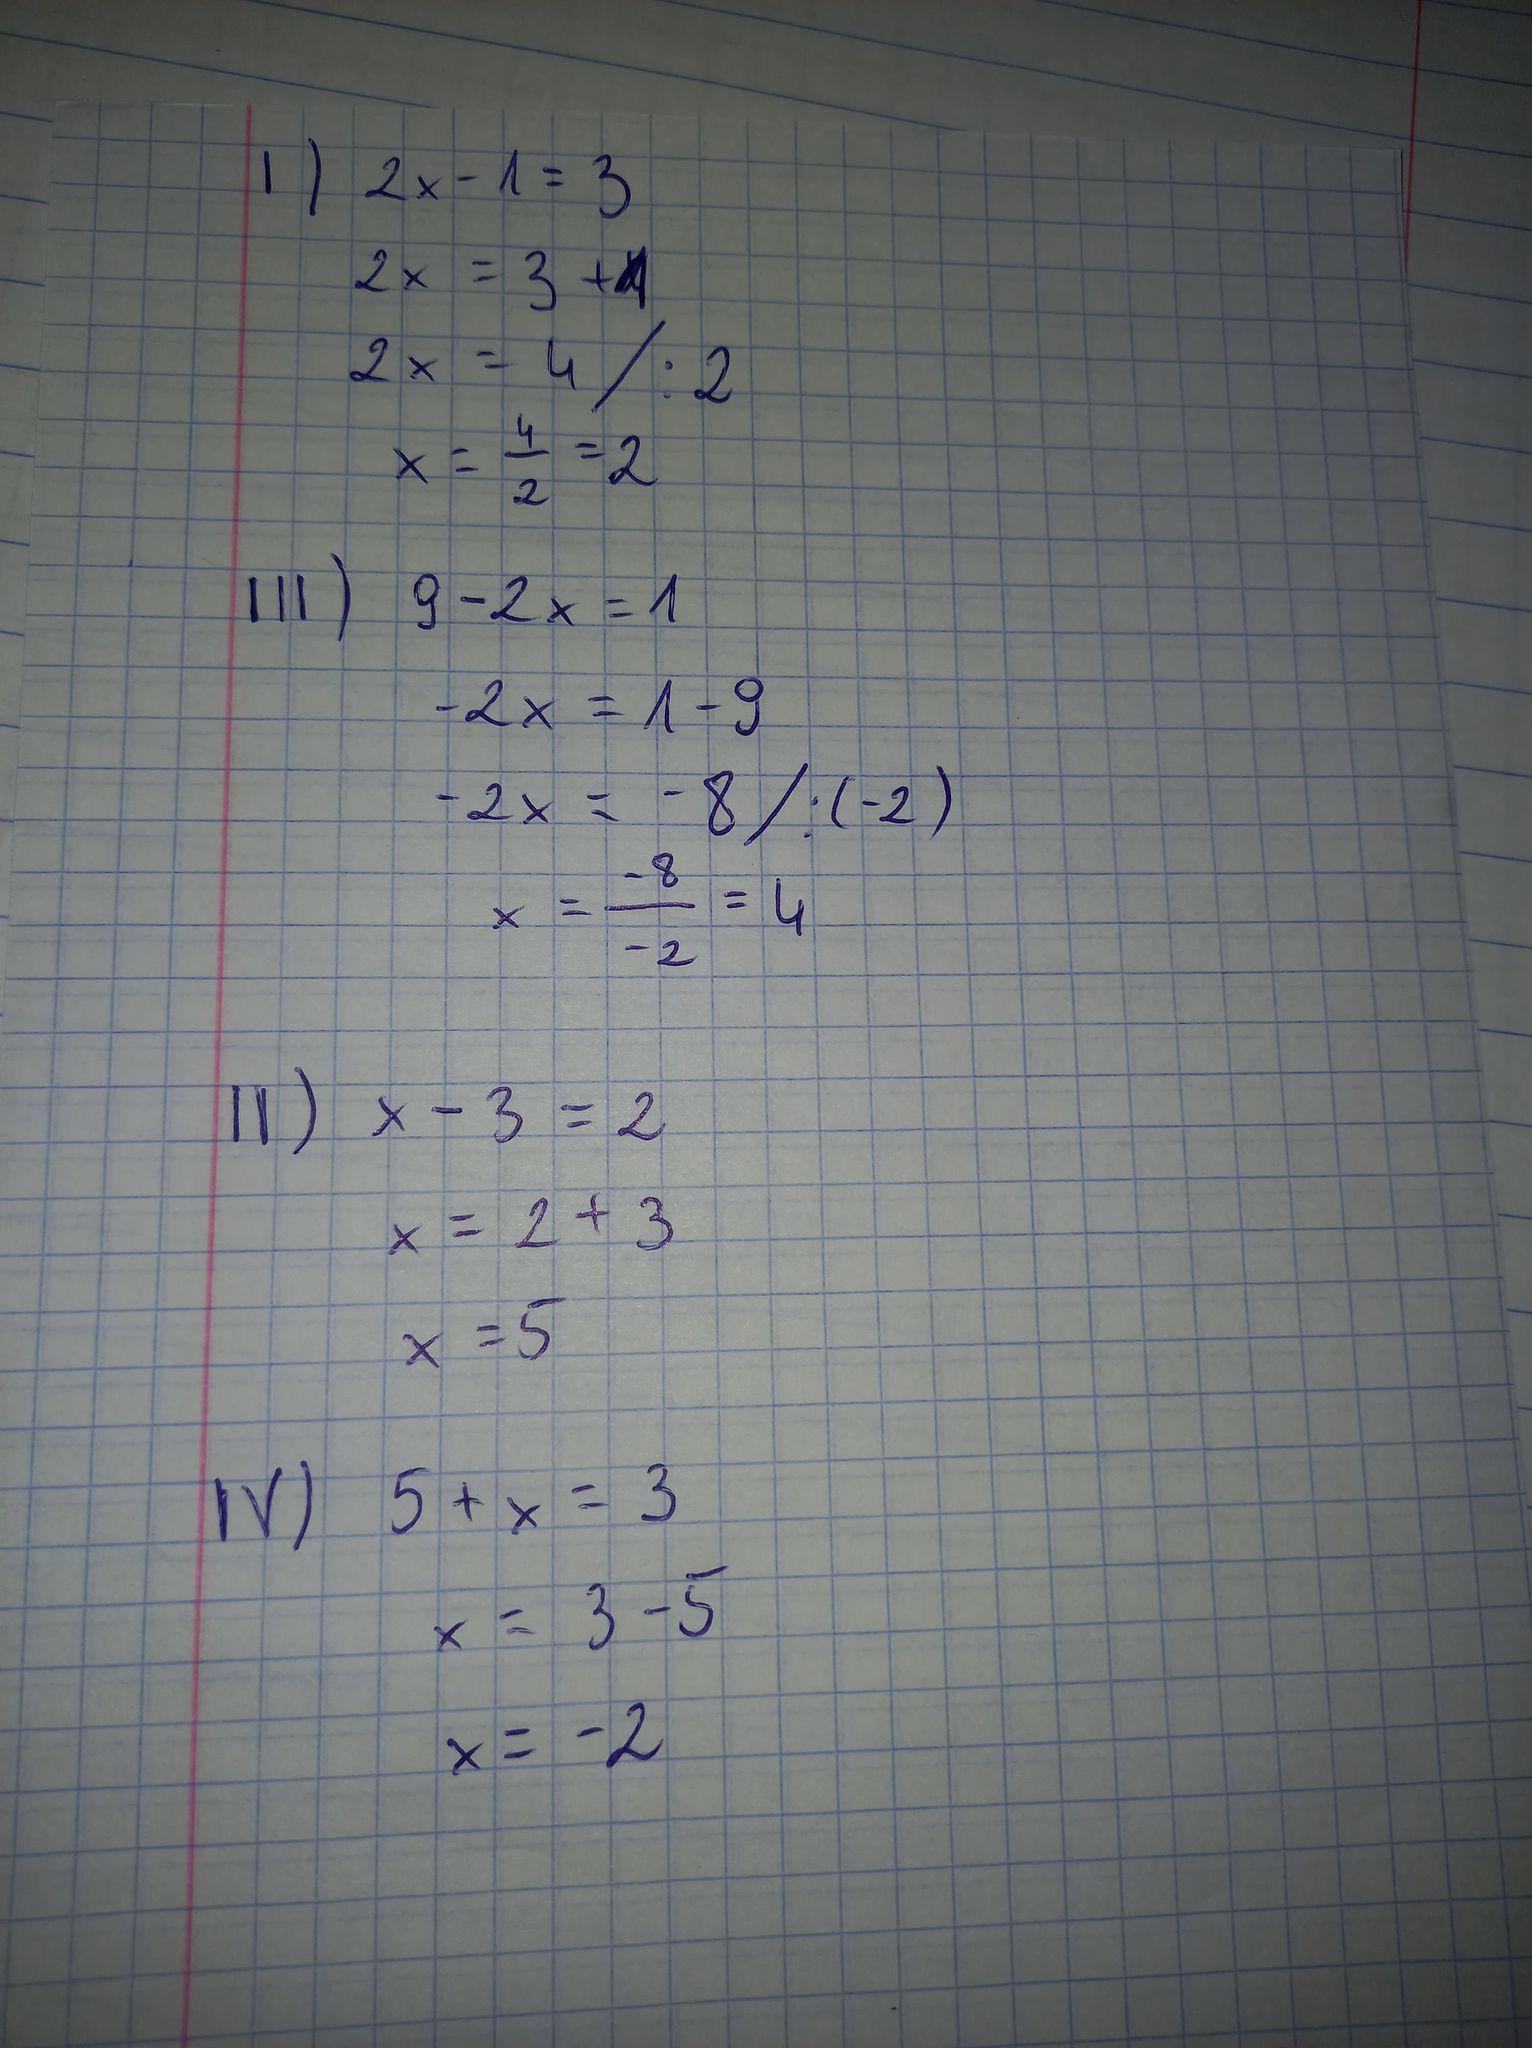 I) 2x - 1 = 3
2x = 3 + 1
2x = 4 / : 2
x = 4/2 = 2
III) 9 - 2x = 1
-2x = 1 - 9
-2x = -8 / : (-2)
x = -8/-2 = 4
II) x - 3 = 2
x = 2 + 3
x = 5
IV) 5 + x = 3
x = 3 - 5
x = -2